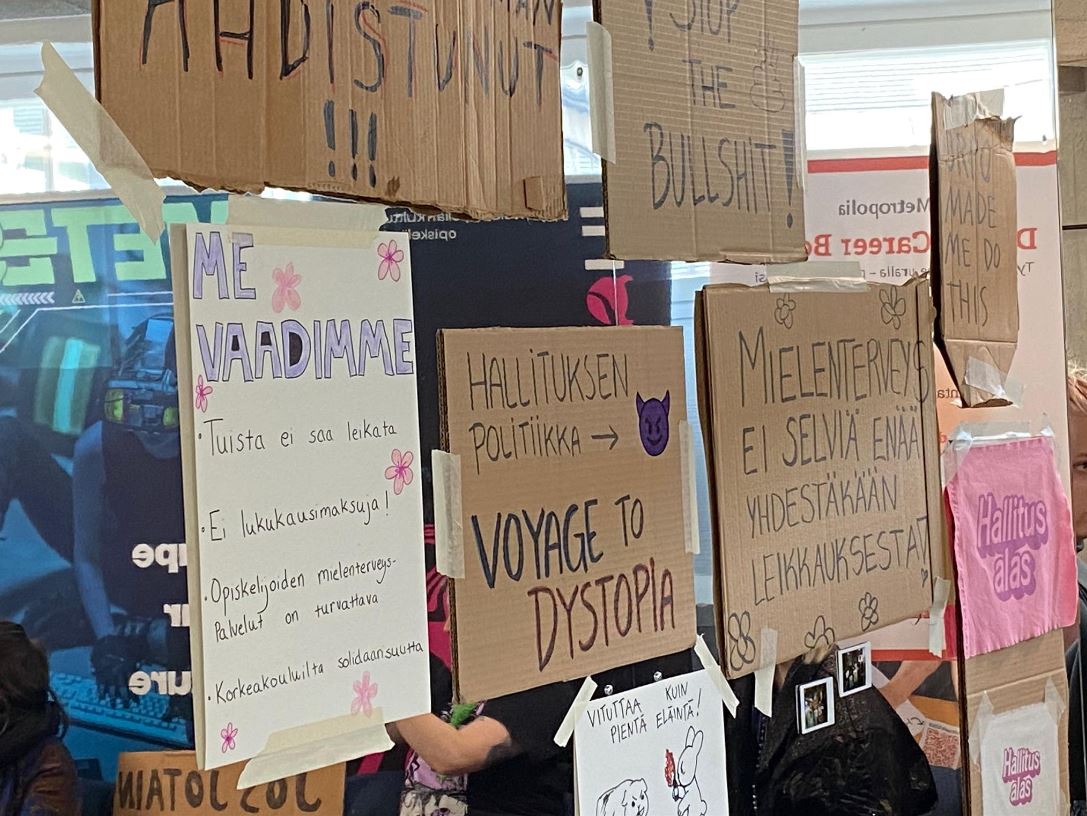 AHDISTUNUT
!!!
! STOP
THE
BULLSHIT!
MADE
ME DO
THIS
ME
VAADIMME
• Tuista ei saa leikata
• Ei lukukausimaksuja!
• Opiskelijoiden mielenterveys-
palvelut on turvattava
• Korkeakouluilta solidaarisuutta
HALLITUKSEN
POLITIIKKA →
VOYAGE TO
DYSTOPIA
MIELENTERVEYS
EI SELVIÄ ENÄÄ
YHDESTÄKÄÄN
LEIKKAUKSESTA!
Hallitus
alas
VITUTTAA KUIN
PIENTÄ ELÄINTÄ!
Hallitus
alas
Metropolia
Career
opiskeli